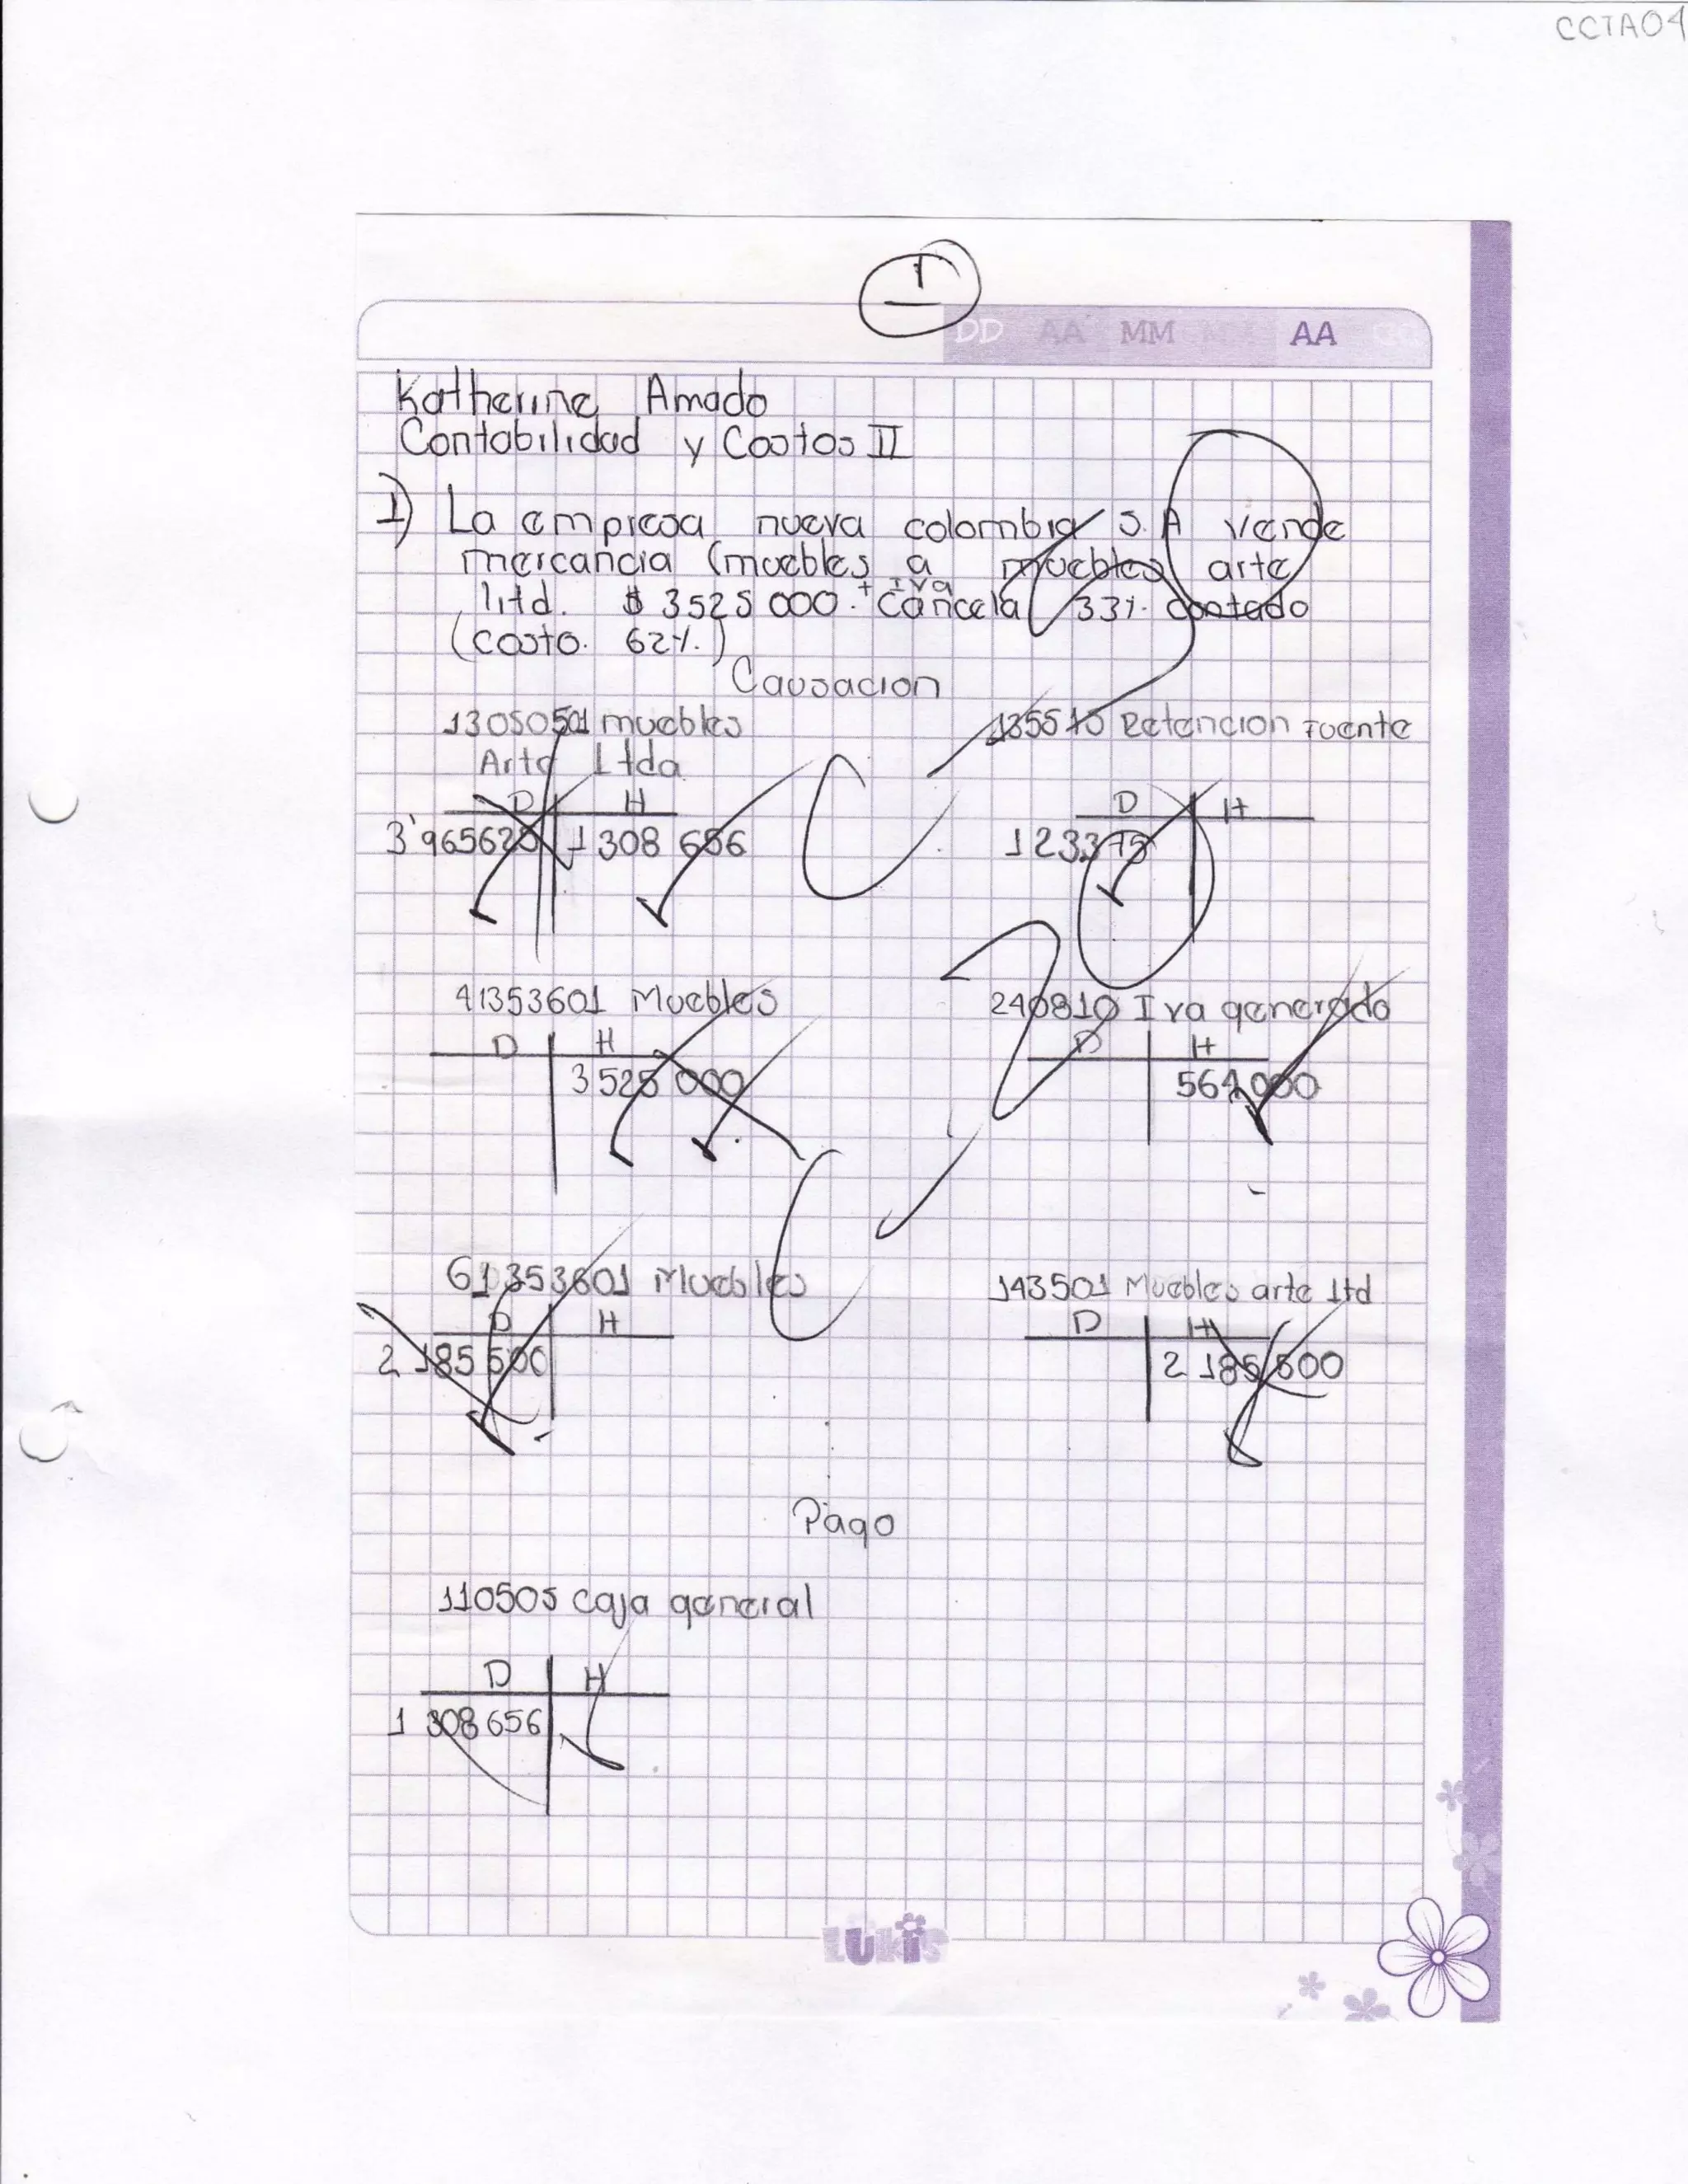 CCTA04
1
DD AA MM AA
Katherine Amado
Contabilidad y Costos II
1) La empresa nueva colombia S.A vende
mercancia (muebles a muebles arte
+ iva
ltd. $ 3525 000. Cancela 33%. contado
(costo. 62%.)
Causacion
13050501 muebles
Arte Ltda
D H
3'965625 1 308 656
135515 Retencion Fuente
D H
123375
41353601 Muebles
D H
3 525 000
240810 Iva generado
D H
564000
61353601 Muebles
D H
2 185 500
143501 Muebles arte ltd
D H
2 185 500
Pago
110505 caja general
D H
1 308 656
LUKIS